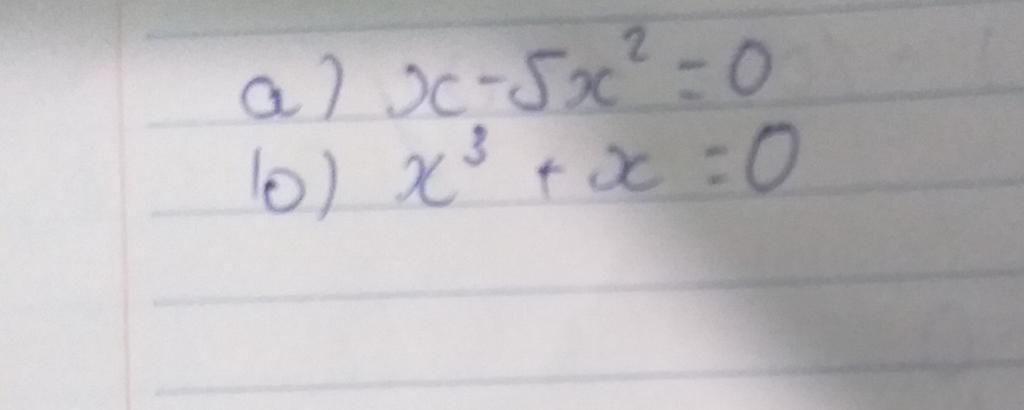 a) x-5x² = 0
b) x³ + x = 0